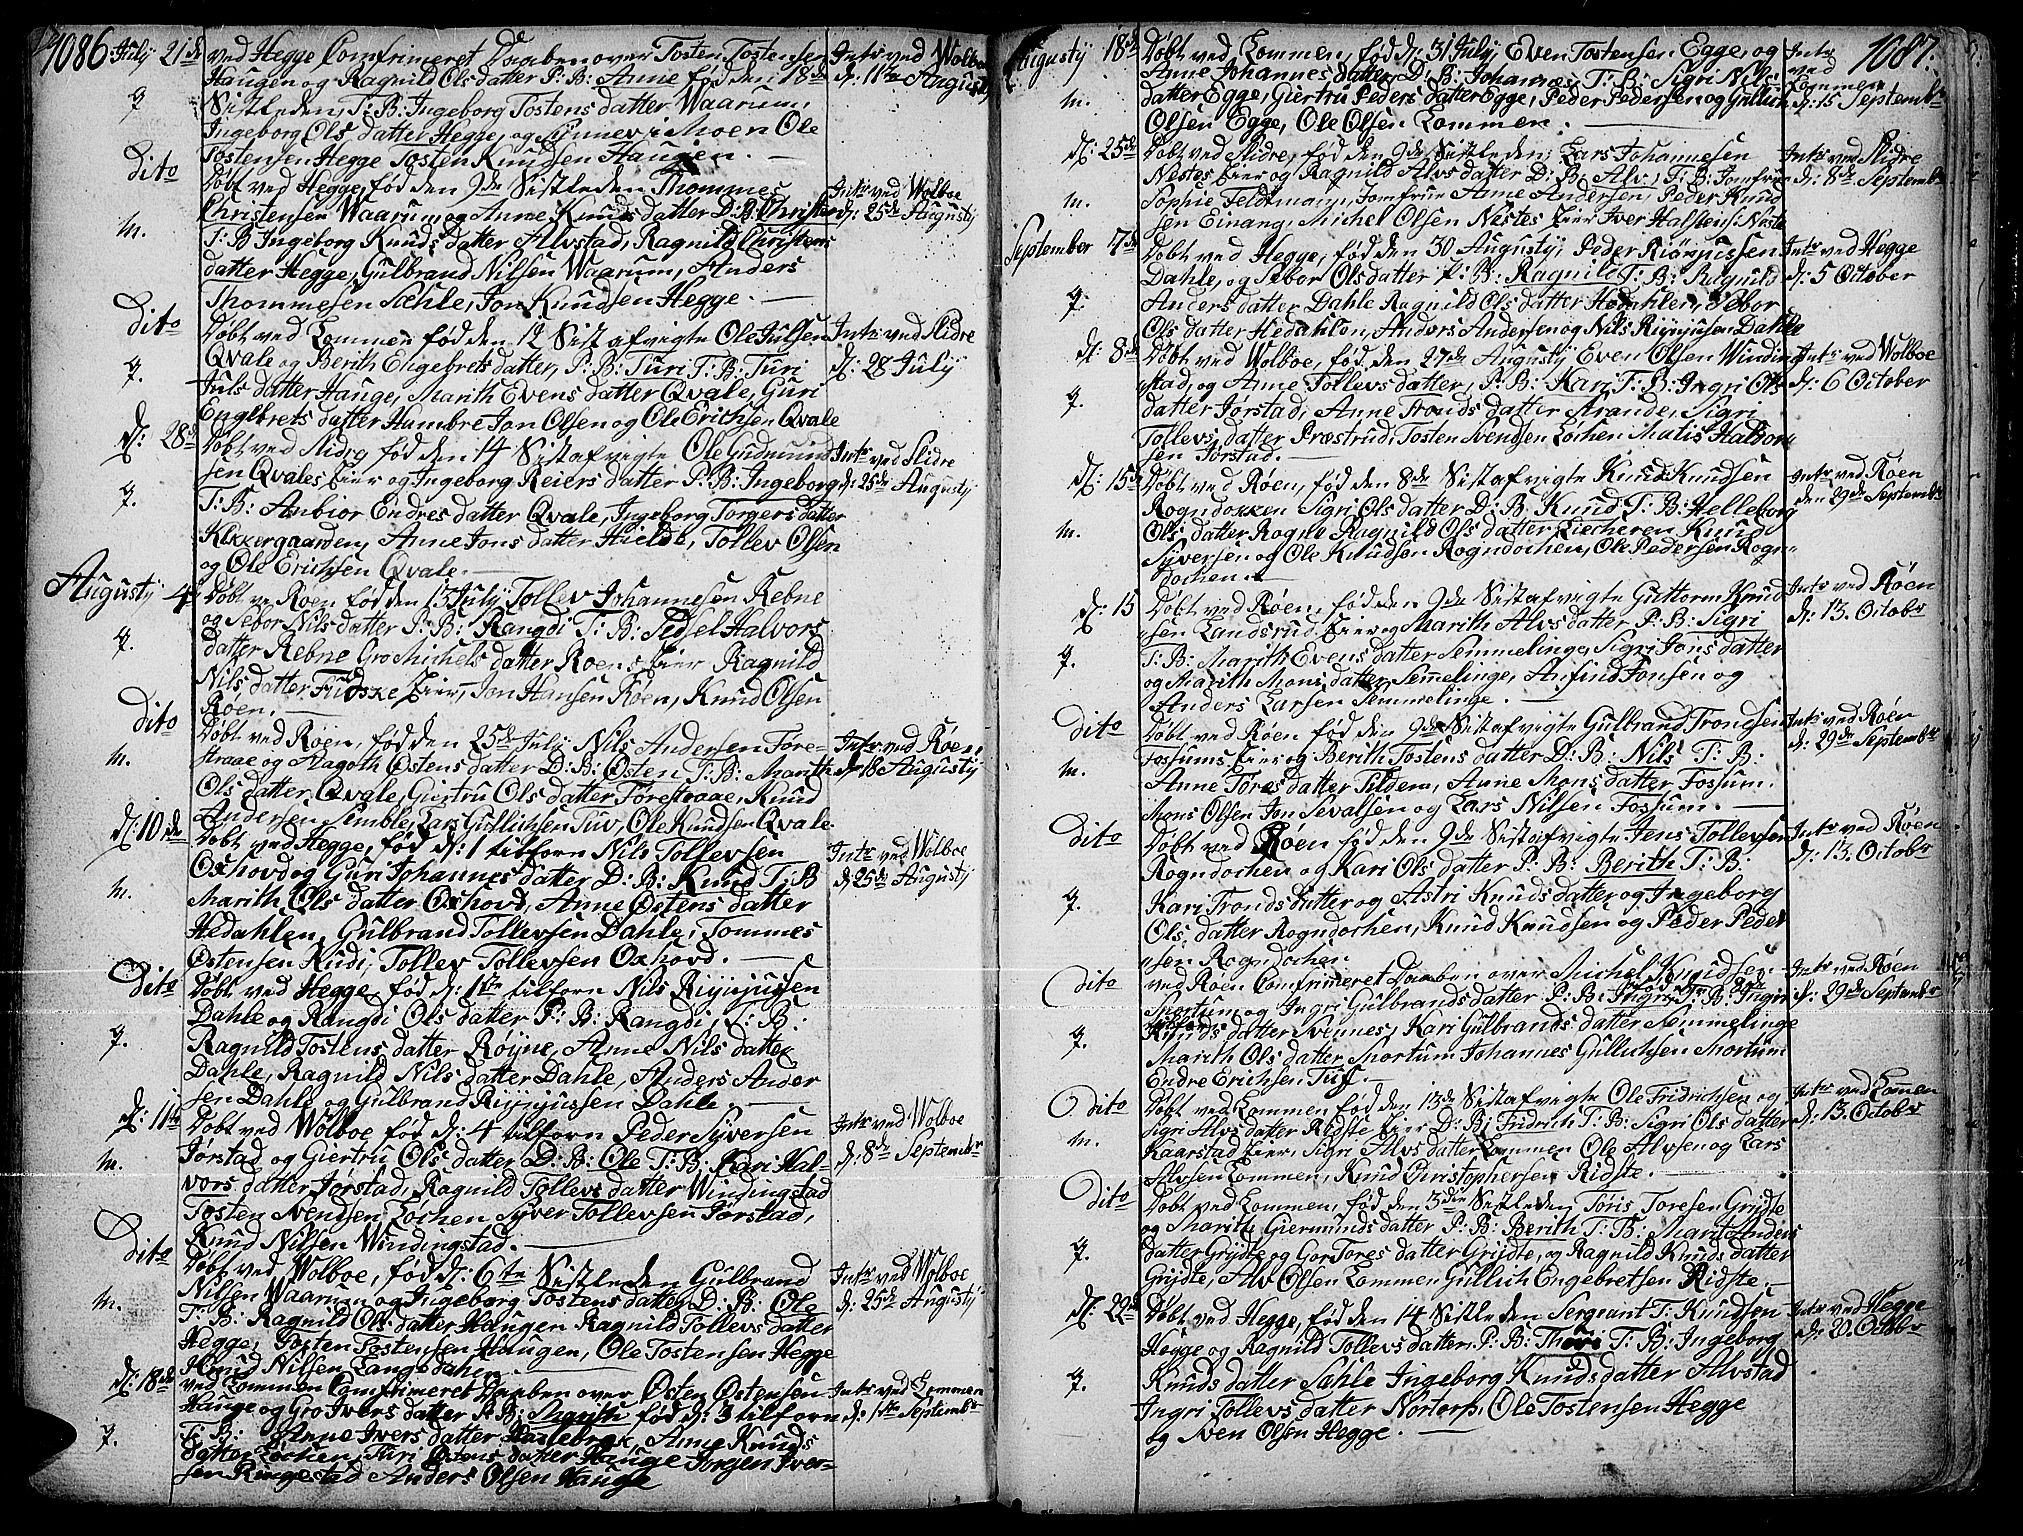 1086
July 21de
ved Hegge Comfrimeret Daaben over Tosten Tostensen
Haugen og Ragnild Ols datter P: B: Anne fød den 18de
Sistleden, T: B: Ingeborg Tostens datter Waarum,
Ingeborg Ols datter Hegge, og Synnev i Moen Ole
Tostensen Hegge Tosten Knudsen Haugen.
Intr ved Wolboe
d: 11te Augustij
q
Dito
Døbt ved Hegge, fød den 9de Sistleden Thommes
Christensen Waarum og Anne Knuds datter D: B: Christen
T: B Ingeborg Knuds datter Alvstad, Ragnild Christens
datter Hegge, Gulbrand Nilsen Waarum, Anders
Thommesen Sæhle, Jon Knudsen Hegge.
Intr ved Wolboe
d: 25de Augustij
m.
Dito
Døbt ved Lommen fød den 12 Sistafvigte Ole Julsen
Qvale og Berith Engebrets datter, P: B: Turi T: B: Turi
Juls datter Hauge, Marith Evens datter Qvale, Guri
Englbrets datter Hambre Jon Olsen og Ole Erichsen Qvale
Intr ved Slidre
d: 28 Julij
q.
d: 28de
Døbt ved Slidre fød den 14 Sistafvigte Ole Gudmund
sen Qvales Eier og Ingeborg Reiers datter P: B: Ingeborg
T: B: Anbior Endres datter Qvale, Ingeborg Torgers datter
Klokkergaarden, Anne Jons datter Hielde, Tollev Olsen
og Ole Erichsen Qvale.
Intr ved Slidre
d: 25de Augustij
q.
Augustij 4de
Døbt ved Røen fød den 13 Julij Tollev Johannesen Rebne
og Sebor Nils datter P: B: Rangdi T: B: Sidsel Halvors
datter Rebne Gro Michels datter Roens Eier Ragnild
Nils datter Fudske Eier, Jon Hansen Røen, Knud Olsen
Roen.
q.
Dito
Døbt ved Røen, fød den 25de July Nils Andersen Føre-
straae og Aagoth Østens datter D: B: Østen T: B: Marith
Ols datter Qvale, Giertru Ols datter Førestraae, Knud
Andersen Semble, Lars Gullichsen Tuv, Ole Knudsen Qvale
Intr ved Røen
d: 18 Augustij
m.
d: 10de
Døbt ved Hegge, fød d: 1 tilforn Nils Tollevsen
Oxhovd og Guri Johannes datter D: B: Knud T: B
Marith Ols datter Oxhovd, Anne Østens datter
Hedahlen, Gulbrand Tollevsen Dahle, Tommes
Østensen Rudi, Tollev Tollevsen Oxhovd.
Intr ved Wolboe
d: 25de Augustij
m.
Dito
Døbt ved Hegge, fød d: 1ste tilforn Nils Rijnjussen
Dahle og Rangdi Ols datter P: B: Rangdi, T: B:
Ragnild Tostens datter Røyne, Anne Nils datter
Dahle, Ragnild Nils datter Dahle, Anders Ander
sen Dahle og Gulbrand Rijnjussen Dahle.
q.
d: 11te
Døbt ved Wolboe fød d: 4 tilforn Peder Syversen
Jørstad og Giertru Ols datter D: B: Ole T: B: Kari Hal-
vors datter Jørstad, Ragnild Tollevs datter Windingstad
Tosten Svendsen Lochen Syver Tollevsen Jørstad,
Knud Nilsen Windingstad.
Intr ved Wolboe
d: 8de Septembr
m.
Dito
Døbt ved Wolboe, fød d: 6te Sistleden Gulbrand
Nilsen Waarum og Ingeborg Tostens datter D: B: Ole
T: B: Ragnild Ols datter Haugen Ragnild Tollevs datter
Hegge, Tosten Tostensen Haugen, Ole Tostensen Hegge
Knud Nilsen Langedahn.
Intr ved Wolboe
d: 25de Augustij
m.
d: 18de
ved Lommen Comfrimeret Daaben over Østen Østensen
Hauge og Gro Ivers datter P: B: Marith fød d: 3 tilforn
T: B: Anne Ivers datter Hasebrek, Anne Knuds
datter Lochen, Turi Østens datter Hauge Jorgen Iver-
sen Ringestad Anders Olsen Hauge
Intr ved Lommen
d: 1ste Septembr
q.
1087.
Augustij 18de
Døbt ved Lommen, fød d: 31 July Even Tostensen Egge, og
Anne Johannes datter D: B: Johannes T: B: Sigri Nils
datter Egge, Giertru Peders datter Egge, Peder Pedersen og Gullich
Olsen Egge, Ole Olsen Lommen.
Intr
ved
Lommen
d: 15 Septembr
m.
d: 25de
Døbt ved Slidre, fød den 9de Sistleden, Lars Johannesen
Nestes Eier og Ragnild Alvs datter D: B: Alv, T: B: Jomfrue
Sophie Feldtmann, Jomfrue Anne Andersen, Peder Knud
sen Einang, Michel Olsen Nestes Eier Iver Halsteins: Neste
Intr ved Slidre
d: 8de Septembr
m.
September 7de
Døbt ved Hegge, fød den 30 Augustij, Peder Riørnjussen
Dahle, og Sebor Ols datter P: B: Ragnild T: B: Ragnild
Anders datter Dahle Ragnild Ols datter Hedahlen, Sebor
Ols datter Hedahlen, Anders Andersen og Nils Rijnjusen Dahle
Intr ved Hegge
d: 5 October
q.
d: 8de
Døbt ved Wolboe, fød den 27de Augustij Even Olsen Winding
stad, og Anne Tollevs datter, P: B: Kari T: B: Ingri Ols
datter Jørstad, Anne Tronds datter Strande, Sigri
Tollevs datter Præstrud, Tosten Svendsen Lochen Matis Halvor
sen Jørstad.
Intr ved Wolboe
d: 6 October
q.
d: 15de
Døbt ved Røen, fød den 8de Sistafvigte Knud Knudsen
Rogndokken Sigri Ols datter D: B: Knud T: B: Helleborg
Ols datter Rogne Ragnild Ols datter Liecheren Knud
Syversen og Ole Knudsen Rogndochen, Ole Pedersen Rogn-
dochen.
Intr ved Røen
den 29de Septembr
m.
d: 15
Døbt ved Røen, fød den 9de Sistafvigte Guttorm Knud
sen Landsrud Eier og Marith Alvs datter P: B: Sigri
T: B: Marith Evens datter Semmelinge, Sigri Jons datter
og Marith Mons datter Semelinge, Anfind Jonsen og
Anders Larsen Semmelinge.
Intr ved Røen
d: 13. Octobr
q.
Dito
Døbt ved Røen fød den 9de Sistafvigte Gulbrand Trondsen
Fossums Eier og Berith Tostens datter D: B: Nils T: B:
Anne Tores datter Tildem, Anne Mons datter Fossum.
Mons Olsen Jon Sevalsen og Lars Nilsen Fossum.
Intr ved Røen
d: 29de Septembr
m.
Dito
Døbt ved Røen fød den 9de Sistafvigte Jens Tollevsen
Rogndochen og Kari Ols datter P: B: Berith T: B:
Kari Tronds datter og Astri Knuds datter og Ingeborg
Ols datter Rogndochen, Knud Knudsen og Peder Peder
sen Rogndochen
Intr ved Røen
d: 13. Octobr
q.
Dito
ved Røen Comfrimeret Daaben over Michel Knudsen
Mortum og Ingri Gulbrands datter P: B: Ingri, T: B: Ingri
Knuds datter Svennes, Kari Gulbrands datter Semmelinge
Marith Ols datter Mortum Johannes Gullichsen Mortum
Endre Erichsen Tuf.
Intr ved Røen
d: 29de Septembr
q.
Dito
Døbt ved Lommen fød den 13de Sistafvigte Ole Fridrichsen og
Sigri Alvs datter Ridste Eier D: B: Fridrich T: B: Sigri Ols datter
Kaarstad Eier, Sigri Alvs datter Lommen Ole Alvsen og Lars
Alvsen Lommen, Knud Christophersen Ridste.
Intr ved Lomen
d: 13. Octobr
m.
Dito
Døbt ved Lommen, fød den 3die Sistleden Toris Toresen Grijdte
og Marith Giermunds datter P: B: Berith T: B: Marit Anders
datter Grijdte og Gor Tores datter Grijdte, og Ragnild Knuds datter
Grijdte, Alv Olsen Lommen Gullich Engebretsen Ridste.
q.
d: 22de
Døbt ved Hegge, fød den 14 Sistleden Sergeant T: Knudsen
Høyge og Ragnild Tollevs datter P: B: Thora T: B: Ingeborg
Knuds datter Sæhle Ingeborg Knuds datter Alvstad
Ingri Tollevs datter Nortorp, Ole Tostensen Hegge
og Sven Olsen Hegge.
Intr ved Hegge
d: 20. Octobr
q.